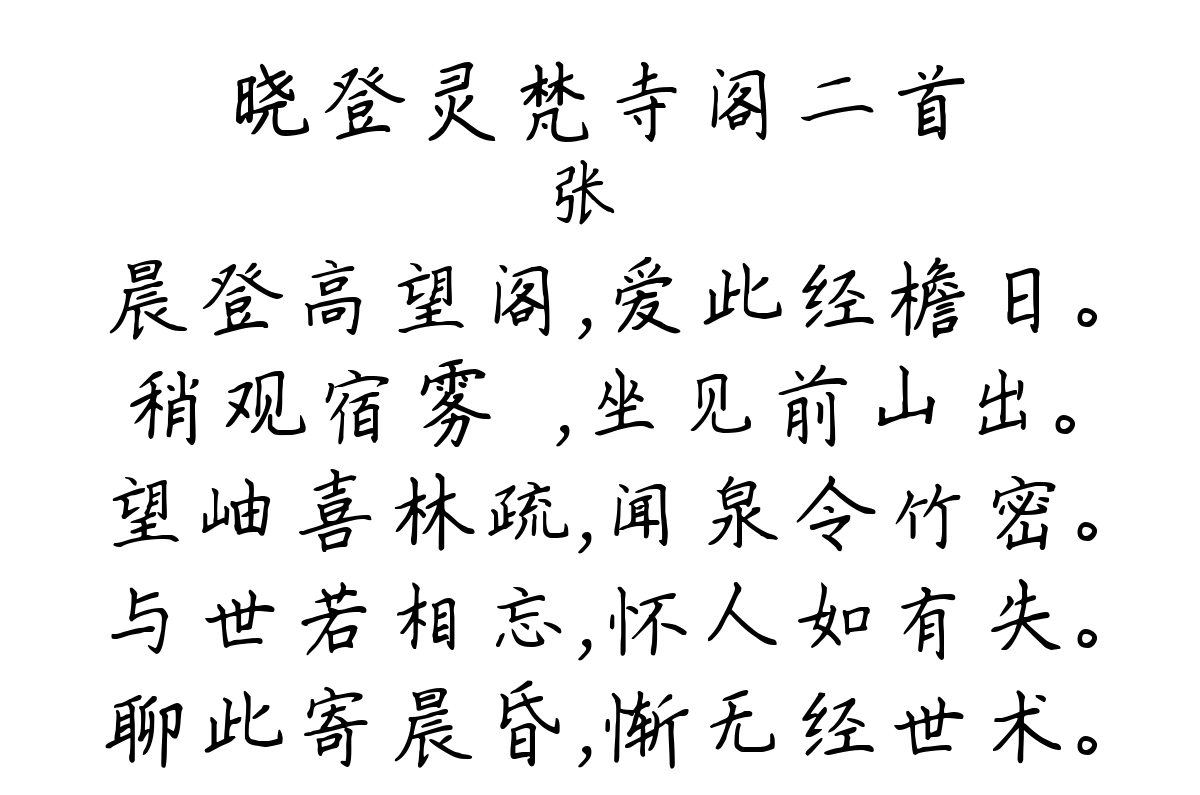 晓登灵梵寺阁二首
张
晨登高望阁,爱此经檐日。
稍观宿雾 ,坐见前山出。
望岫喜林疏,闻泉令竹密。
与世若相忘,怀人如有失。
聊此寄晨昏,惭无经世术。